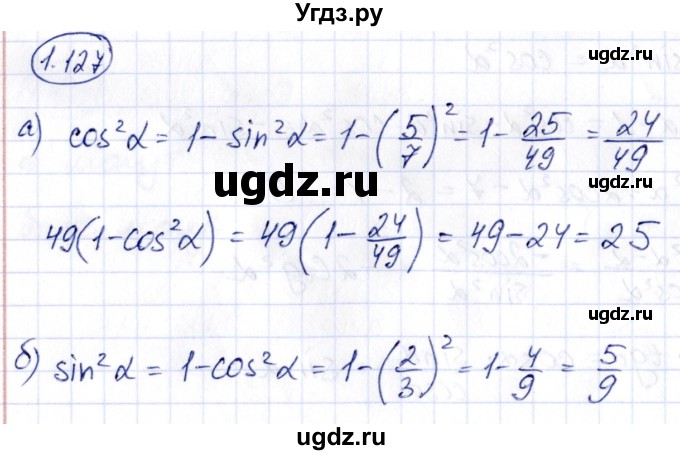 Угдз.ру
ugdz.ru
ugdz.ru
1.127
а) cos²α = 1 - sin²α = 1 - (5/7)² = 1 - 25/49 = 24/49
ugdz.ru
ugdz.ru
49(1-cos²α) = 49(1 - 24/49) = 49 - 24 = 25
ugdz.ru
ugdz.ru
б) sin²α = 1-cos²α = 1-(2/3)² = 1-4/9 = 5/9
ugdz.ru